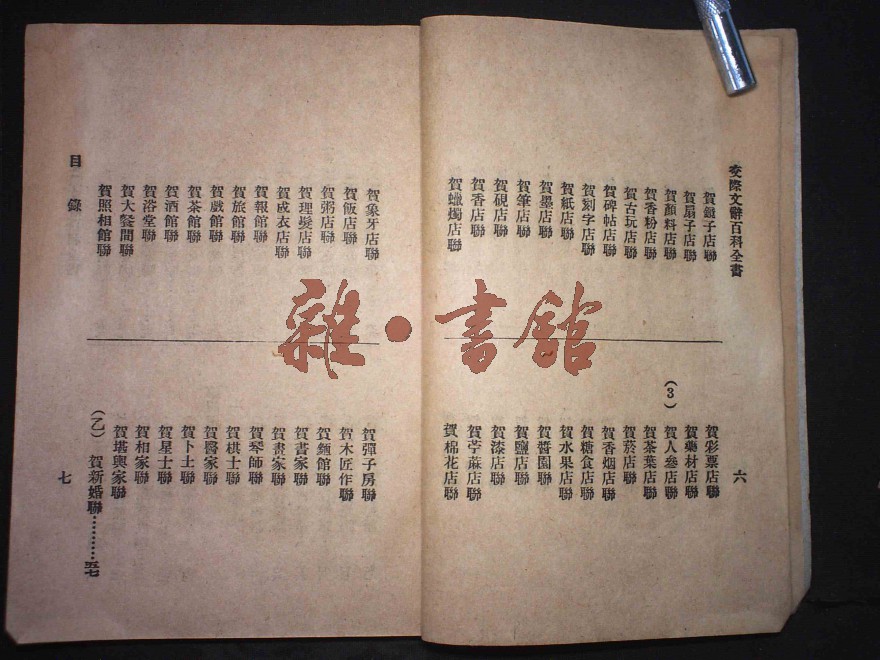 交際文辭百科全書
賀鏡子店聯
賀扇子店聯
賀顏料店聯
賀香粉店聯
賀古玩店聯
賀碑帖店聯
賀刻字店聯
賀紙店聯
賀墨店聯
賀筆店聯
賀硯店聯
賀香店聯
賀蠟燭店聯
六
賀彩票店聯
賀藥材店聯
賀人參店聯
(3)
賀茶葉店聯
賀菸店聯
賀香烟店聯
賀糖食店聯
賀水果店聯
賀醬園聯
賀鹽店聯
賀漆店聯
賀苧蔴店聯
賀棉花店聯
賀象牙店聯
賀飯店聯
賀粥店聯
賀理髮店聯
賀成衣店聯
賀報館聯
賀旅館聯
賀戲館聯
賀茶館聯
賀酒館聯
賀浴堂聯
賀大餐間聯
賀照相館聯
目錄
賀彈子房聯
賀木匠作聯
賀麵館聯
賀書家聯
賀畫家聯
賀琴師聯
賀棋士聯
賀醫家聯
賀卜士聯
賀星士聯
賀相家聯
賀堪輿家聯
(乙) 賀新婚聯………五七
七
雜·書館